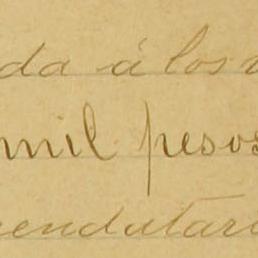 da á los
mil pesos
endatar